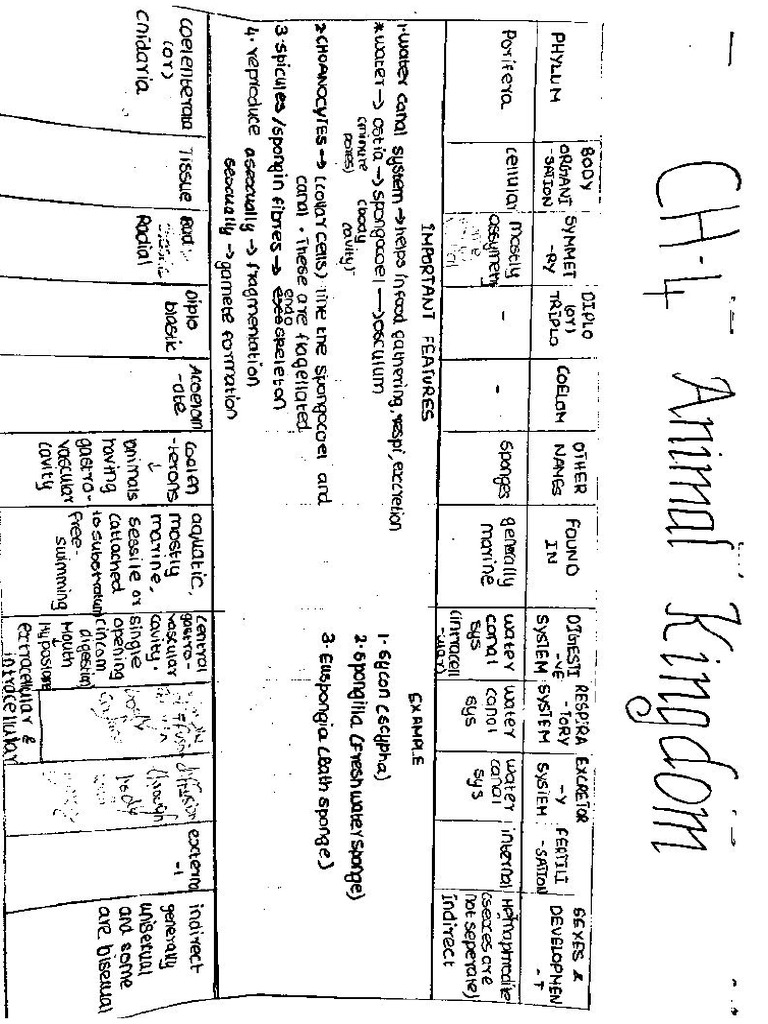 CH-4 Animal Kingdom
PHYLUM
BODY ORGANI-SATION
SYMMET-RY
DIPLO (or) TRIPLO
COELOM
OTHER NAMES
FOUND IN
DIGESTI-VE SYSTEM
RESPIRA-TORY SYSTEM
EXCRETOR-Y SYSTEM
FERTILI-SATION
SEXES & DEVELOPMEN-T
Porifera
cellular
mostly assymet
-
-
sponges
generally marine
water canal sys (intracell-ular)
water canal sys
water canal sys
internal
Hermaphrodite (sexes are not seperate) indirect
IMPORTANT FEATURES
1. water canal system → helps in food gathering, respi, excretion
* water → ostia → spongocoel → osculum
(minute pores) (body cavity)
2. CHOANOCYTES → (collar cells) line the spongocoel and
canal. These are flagellated
3. spicules/spongin fibres → endoskeleton
4. reproduce asexually → fragmentation
sexually → gamete formation
EXAMPLE
1. sycon (scypha)
2. spongilla (Fresh water sponge)
3. Euspongia (Bath sponge)
coelenterata (or) cnidaria
Tissue
Radial
Diplo blastic
Acoelom-ate
coelen-terons ↓ animals having gastro-vascular cavity
aquatic, mostly marine, sessile or (attached to substratum) free-swimming
central gastro-vascular cavity. single opening (incom digestion) Mouth Hypostome
extracellular & intracellular
diffusion through body
externa-l
indirect generally unisexual and some are bisexual